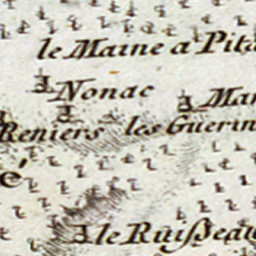 le Maine a Pita
Nonac
Mar
Reniers les Guerin
é
le Ruißeau